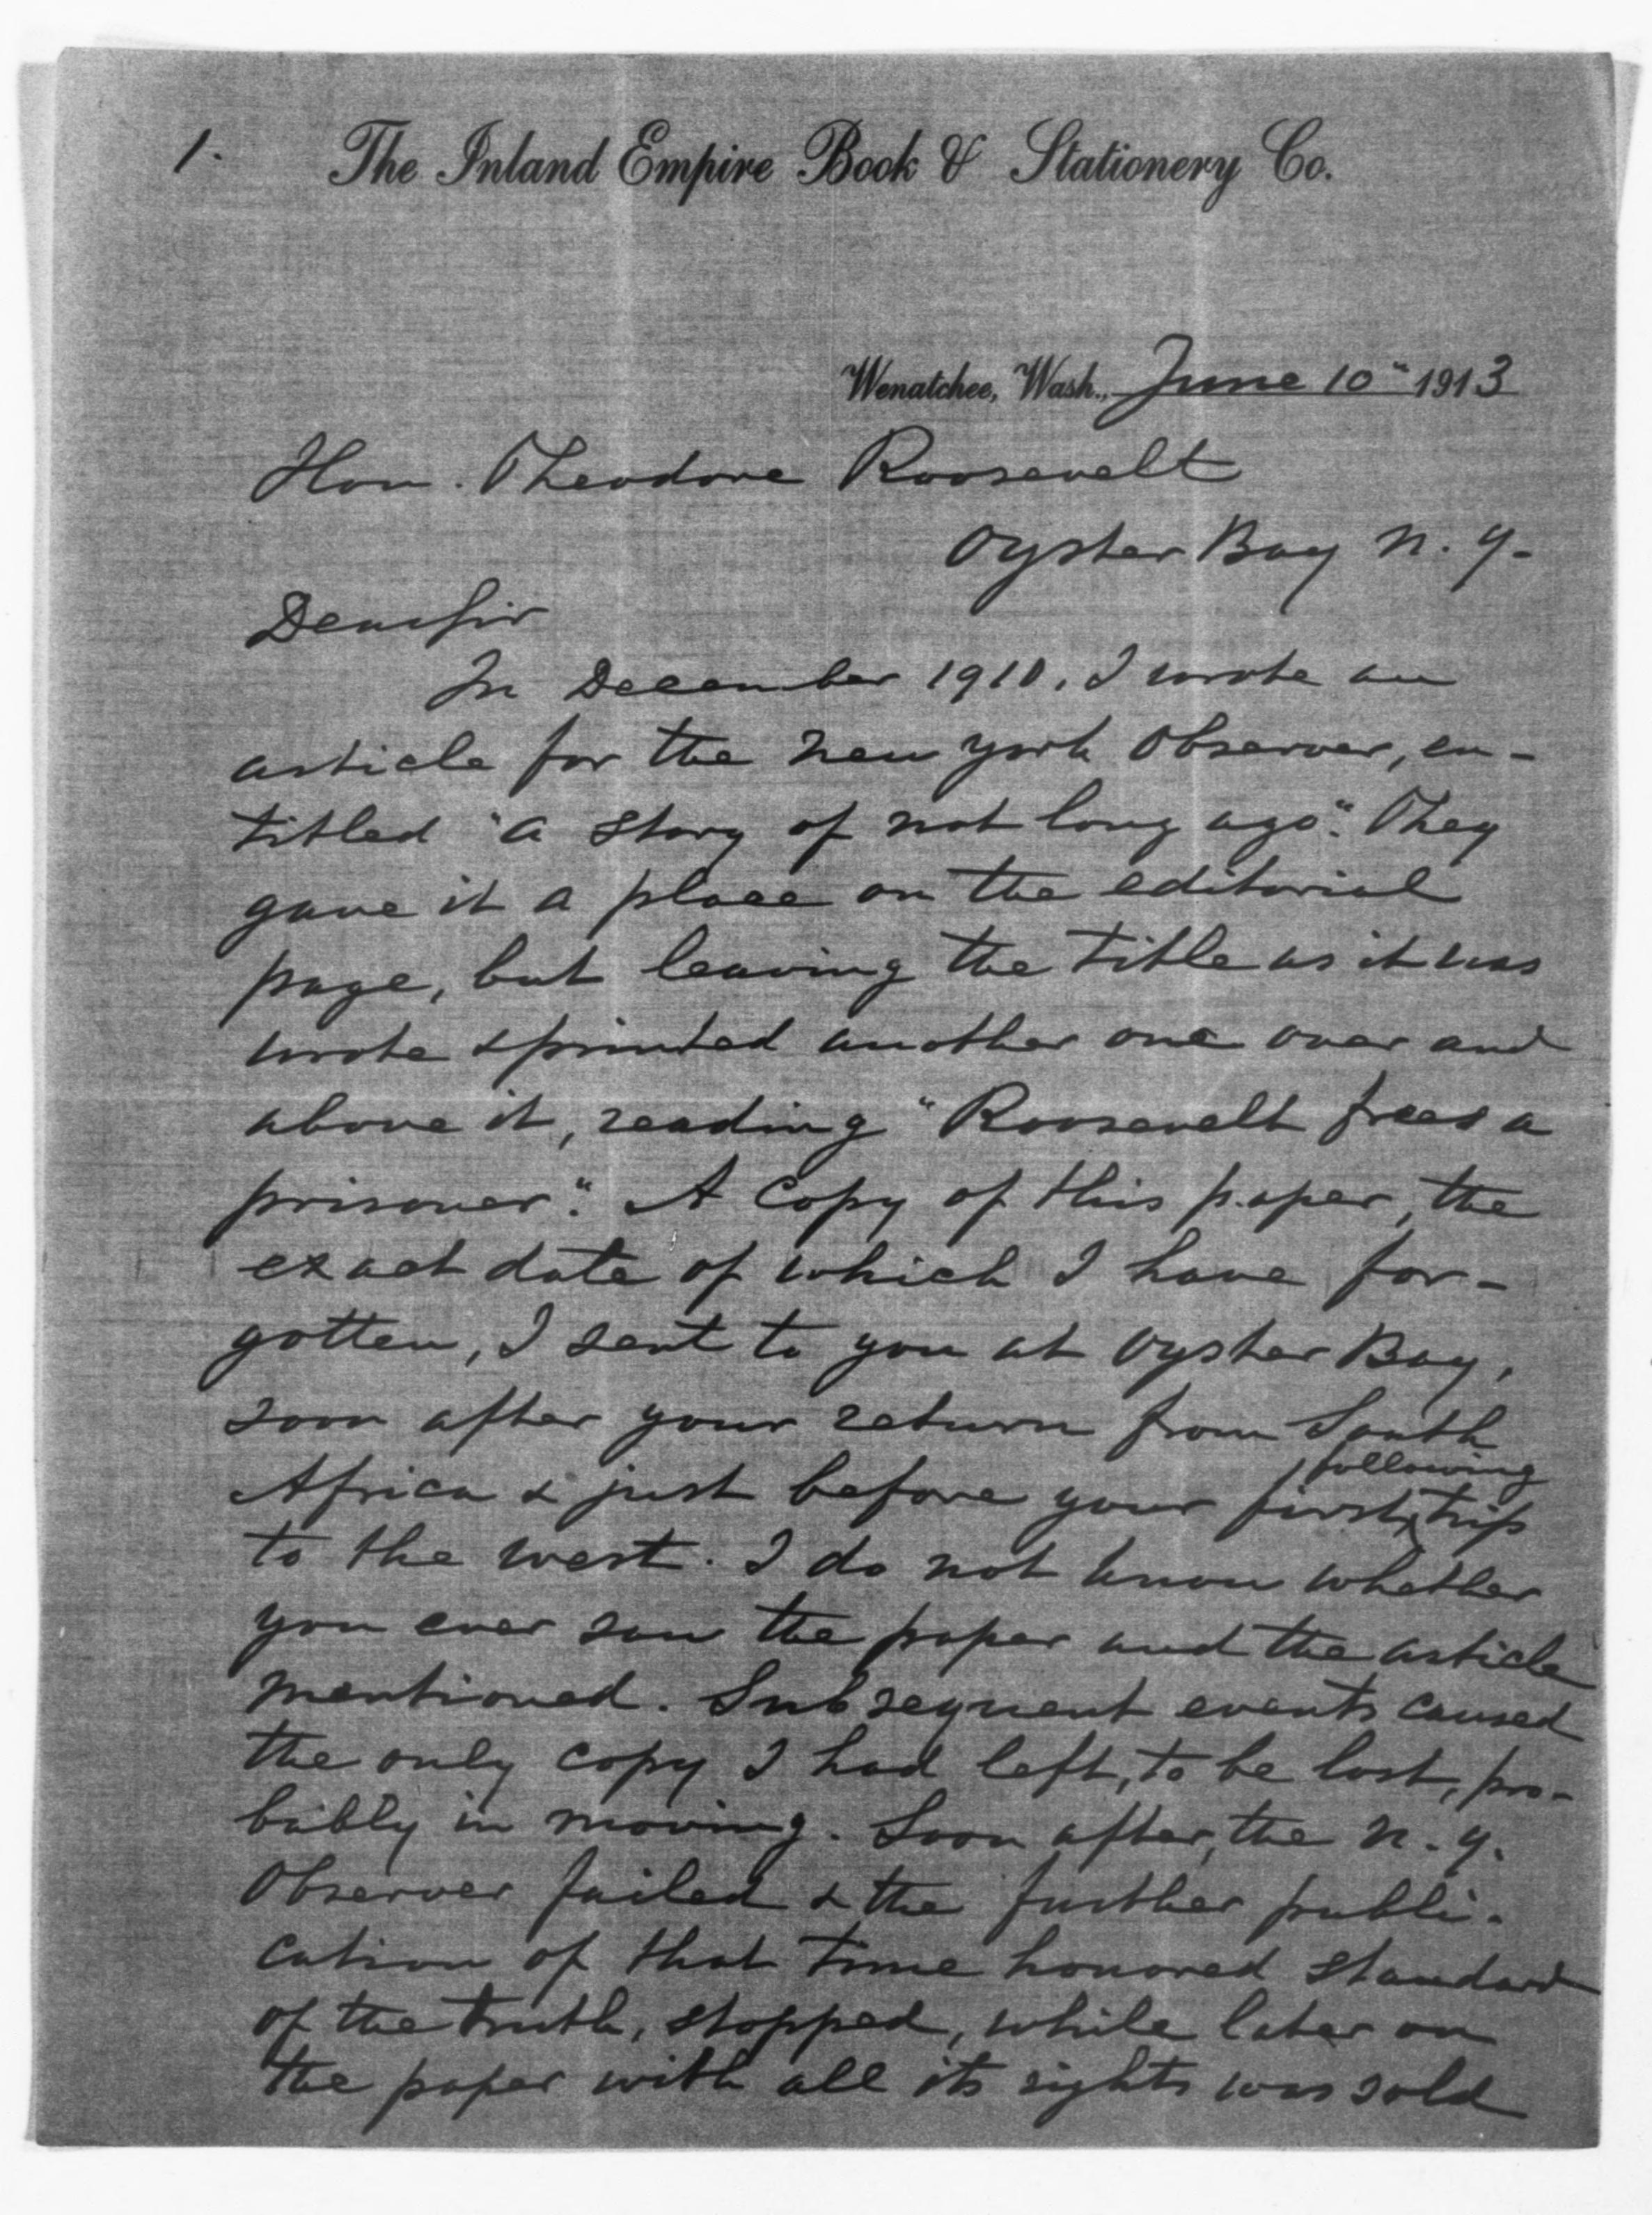 1. The Inland Empire Book & Stationery Co.
Wenatchee, Wash., June 10" 1913
Hon. Theodore Roosevelt
Oyster Bay N. Y.
Dear Sir
In December 1910, I wrote an
article for the New York Observer, en-
titled "A story of not long ago". They
gave it a place on the editorial
page, but leaving the title as it was
wrote & printed another one over and
above it, reading "Roosevelt frees a
prisoner". A Copy of this paper, the
exact date of which I have for-
gotten, I sent to you at Oyster Bay,
soon after your return from South
following
Africa & just before your first trip
to the west. I do not know whether
you ever saw the paper and the article
mentioned. Subsequent events caused
the only copy I had left, to be lost, pro-
bably in moving. Soon after, the N. Y.
Observer failed & the further publi-
cation of that time honored standard
of the truth, stopped, while later on
the paper with all its rights was sold